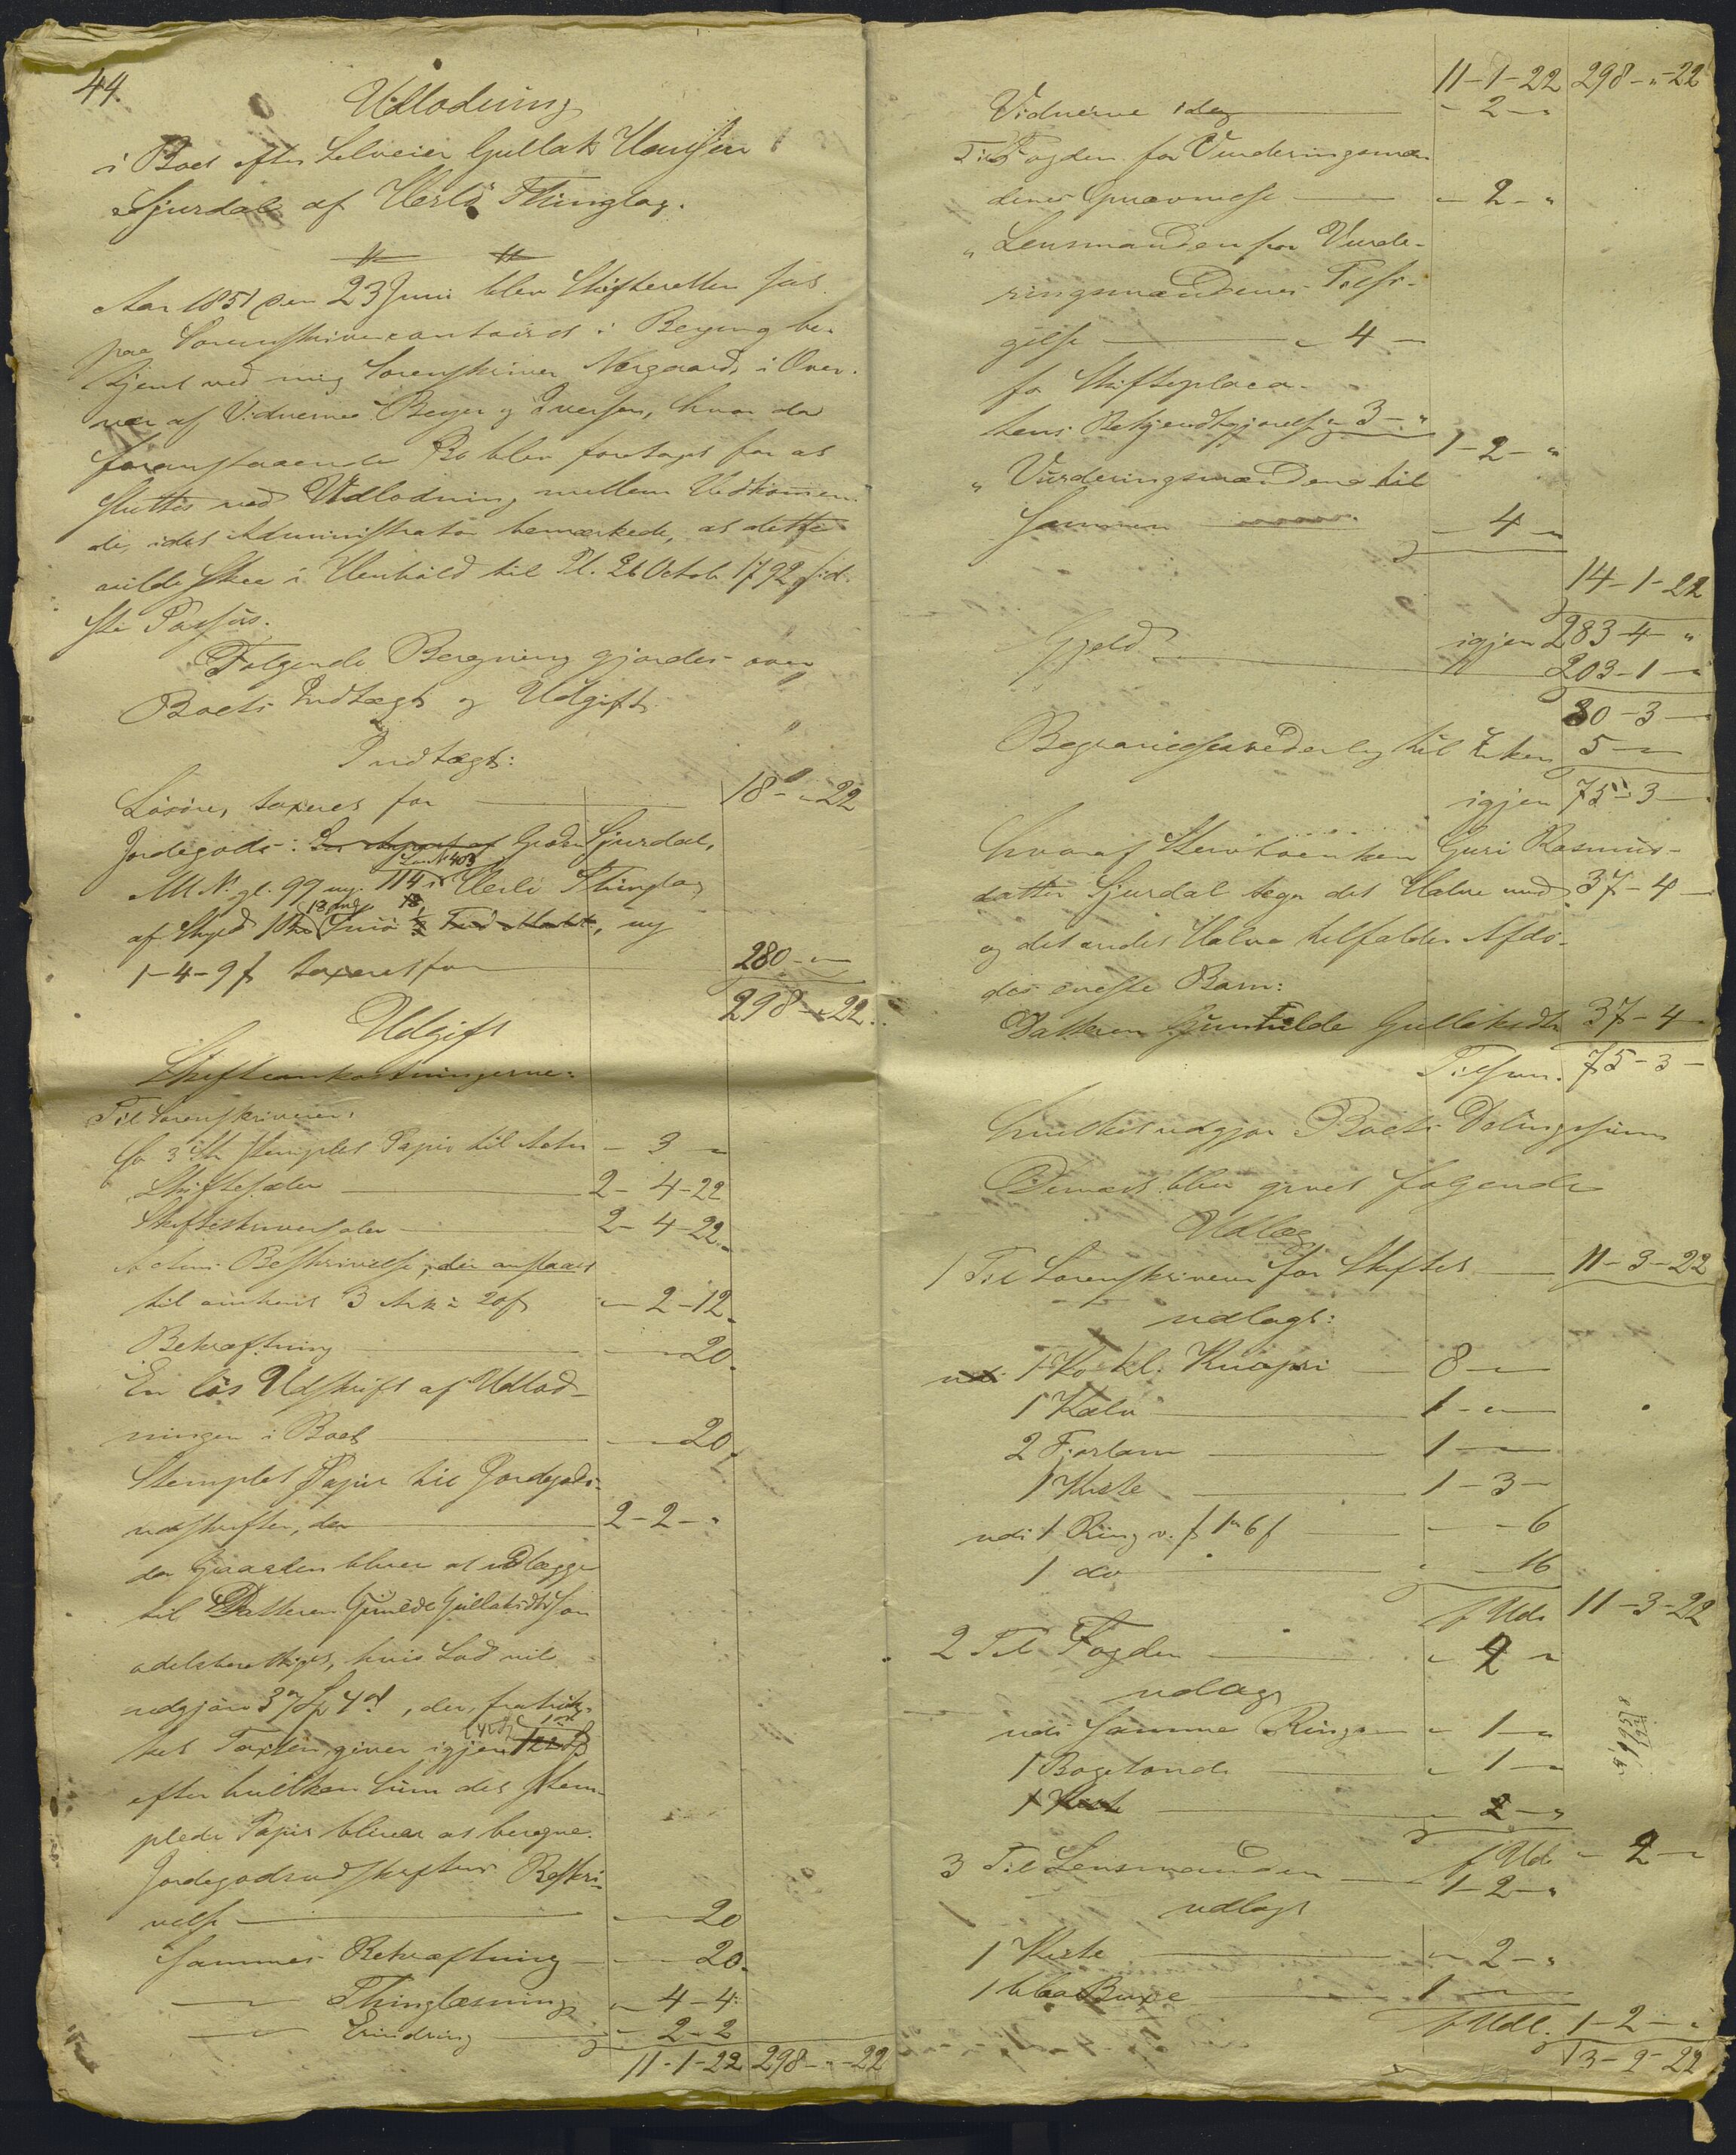 44.
Udlodning
i Boet efter Selveier Gullak Hansen
Gjurdal af Herlö Thinglag.
Aar 1851 den 23 Juni blev Skifteretten sat
paa Sorenskrivercontoiret i Bergen og be-
tjent ved mig Sorenskriver Nørgaard, i Over-
vær af Vidnerne Beyer og Iversen, hvor da
foranstaaende Bo blev foretaget for at
sluttes ved Udlodning mellem Vedkommen-
de, idet Administrator bemærkede, at dette
vilde skee i Henhold til Pl. 26 Octob. 1792 sid-
ste Passus.
Følgende Beregning gjordes over
Boets Indtægt og Udgift
Indtægt:
Lösöre, taxeret for 18 - " - 22
Jordegods: Gaarden Gjurdal,
M N. gl. 97 ny. 114 i Herlö Thinglag
af Skyld Smör, ny
1-4-9 β taxeret for 280 - " -
298 - " - 22.
Udgift
Skifteomkostningerne:
Til Sorenskriveren:
for 3 Ark stemplet Papir til Acten - 3 -
Skiftesalær 2 - 4 - 22
Skifteskriversalær 2 - 4 - 22
Actens Beskrivelse, der ansaaes
til omtrent 3 Ark à 20 β - 2 - 12
Bekræftning - - 20.
En løs Udskrift af Udlod-
ningen i Boet - - 20
Stemplet Papir til Jordegods-
udskriften, der 2 - 2 - "
da Gaarden bliver at udlægge
til Datteren Gunilde Gullaksdtr som
odelsberettiget, hvis Lod vil
udgjøre 37 Spd 4 ort, der, fratruk-
ket Taxten, giver igjen
efter hvilken Sum det stem-
plede Papir bliver at beregne.
Jordegodsudskriftens Beskri-
velse - - 20
Sammes Bekræftning - - 20.
— Thinglæsning - 4 - 4
— Erindring - 2 - 2
11 - 1 - 22 298 - " - 22
11 - 1 - 22 298 - " - 22
Vidnerne idag - 2 - "
Til Fogden for Vurderingsmæn-
denes Opnævnelse - 2 - "
" Lensmanden for Vurde-
ringsmændenes Tilsi-
gelse - 4 -
for Skifteplaca-
tens Bekjendtgjørelse - 3 - "
1 - 2 - "
" Vurderingsmændene til
sammen - 4 -
14 - 1 - 22
igjen 283 - 4 - "
Gjeld 203 - 1 -
80 - 3 -
Begravelsesvederlag til Enken 5 -
igjen 75 - 3 -
hvoraf Stervboenken Guri Rasmus-
datter Gjurdal tager det Halve med 37 - 4 -
og det andet Halve tilfalder Afdö-
des eneste Barn:
Datteren Gunhilde Gullaksdtr 37 - 4
Tilsam. 75 - 3 -
hvilket udgjør Boets Delingssum
Dernæst blev gjort følgende
Udlæg
1 Til Sorenskriveren for Skiftet 11 - 3 - 22
udlagt:
1 Ko kl. Knapri 8 -
1 Kalv 1 - " -
2 Foorlam 1 -
1 Kiste 1 - 3 -
udi 1 Ring v. f 1 6 β - - 6
1 do - 16
f Uds 11 - 3 - 22
2 Til Fogden - 2 -
udlagt
udi samme Ring - 1 -
1 Bogetonde - 1 -
1 Kiste - 2 - "
f Uds - 2 -
3 Til Lensmanden 1 - 2 - "
udlagt
1 Kiste - 2 - "
1 blaa Buxe 1 -
f Udl. 1 - 2 - "
13 - 2 - 22